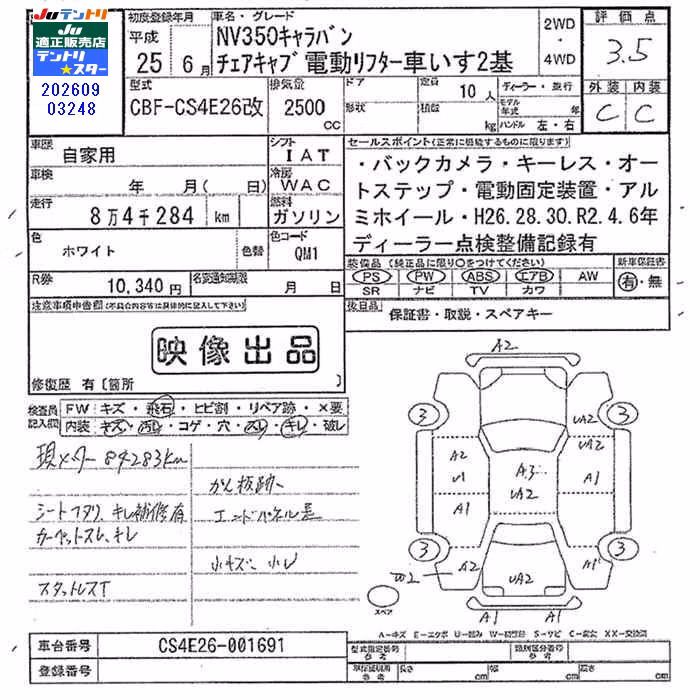 JU テントリ
JU
適正販売店
テントリ
★スター
202609
03248
初度登録年月
平成
25 6月
車名・グレード
NV350キャラバン
チェアキャブ 電動リフター車いす2基
2WD
・
4WD
評価点
3.5
外装 内装
C C
型式
CBF-CS4E26改
排気量
2500 cc
ドア
形状
定員
10人
積載
kg
ディーラー・並行
モデル年式 年
ハンドル 左・右
車歴
自家用
シフト
IAT
車検
年 月( 日)
冷房
WAC
走行
8万4千284 km
燃料
ガソリン
色
ホワイト
色替
色コード
QM1
R券
10,340円
名変通知期限
月 日
セールスポイント(正常に機能するものに限ります)
・バックカメラ・キーレス・オー
トステップ・電動固定装置・アル
ミホイール・H26.28.30.R2.4.6年
ディーラー点検整備記録有
装備品(純正品に限り○をつけてください)
PS PW ABS エアB AW
SR ナビ TV カワ
新車保証書
有・無
後日品
保証書・取説・スペアキー
注意事項申告欄(不具合内容等は具体的に記入して下さい)
映像出品
修復歴 有〔箇所 〕
検査員
記入欄
FW キズ・飛石・ヒビ割・リペア跡・×要
内装 キズ・汚レ・コゲ・穴・スレ・キレ・破レ
現メーター 84283km
シートヘタリ、キレ補修有
カーペットスレ、キレ
スタットレスT
かん板跡
エンドパネル歪
小キズ 小レ
A2
3
3
UA2
A2
UA2
U1
A3
UA2
A1
A1
A1
3
3
W2
A2
UA2
A1
A1
A1
スペア
A-キズ E-エクボ U-凹み W-補修跡 S-サビ C-腐食 XX-交換済
車台番号
CS4E26-001691
登録番号
型式指定番号
参考
類別区分番号
参考
車検証明用
参考
長さ cm
幅 cm
高さ cm